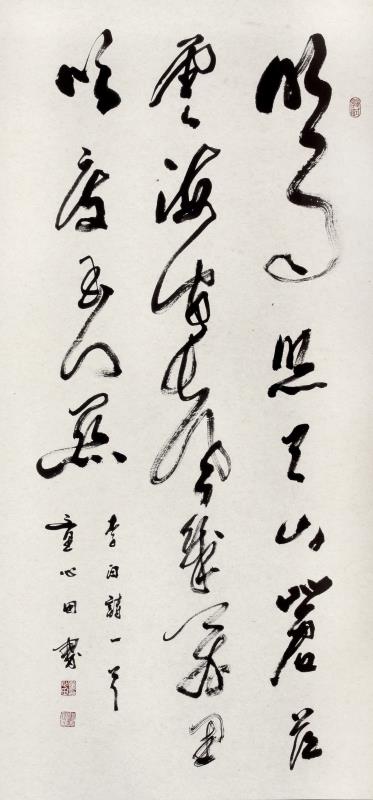 明月照天山蒼茫
雲海間長風幾萬里
吹度玉門關
李白詩一首
童心田書